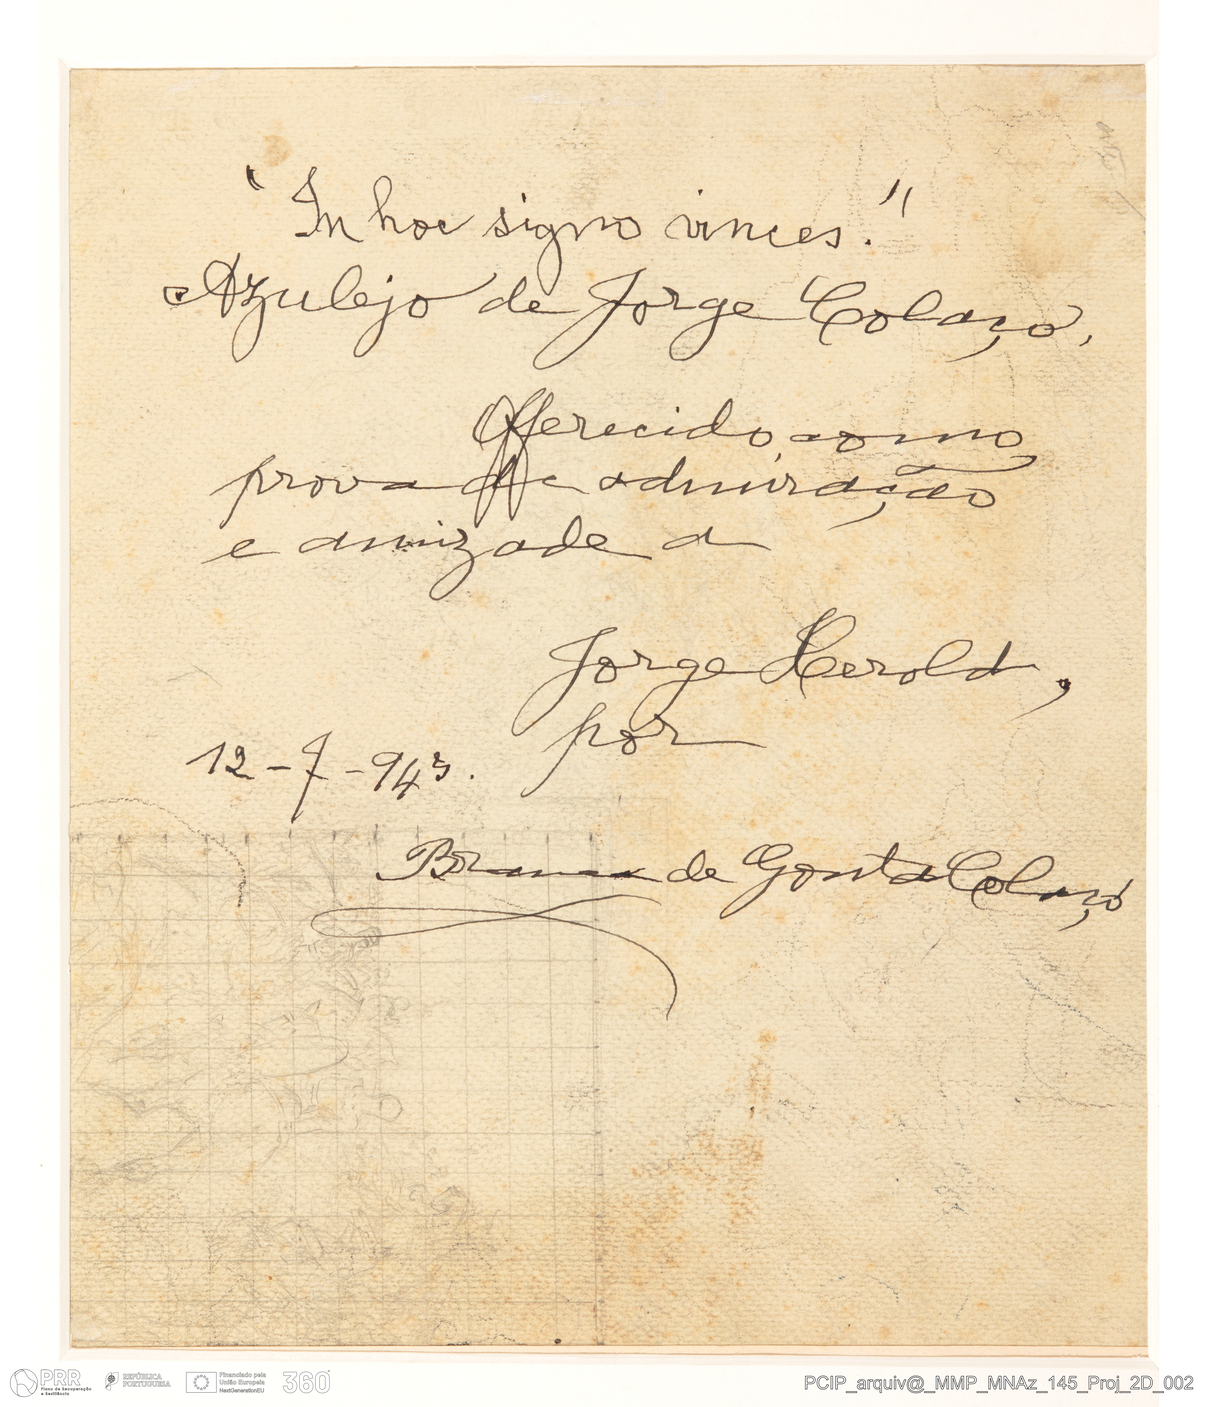 "In hoc signo vinces."
Azulejo de Jorge Colaço,
Offerecido, como
prova de admiração
e amizade a
Jorge Herold,
por
12-7-943.
Branca de Gonta Colaço
PRR
Plano de Recuperação
e Resiliência
REPÚBLICA
PORTUGUESA
Financiado pela
União Europeia
NextGenerationEU
360
PCIP_arquiv@_MMP_MNAz_145_Proj_2D_002